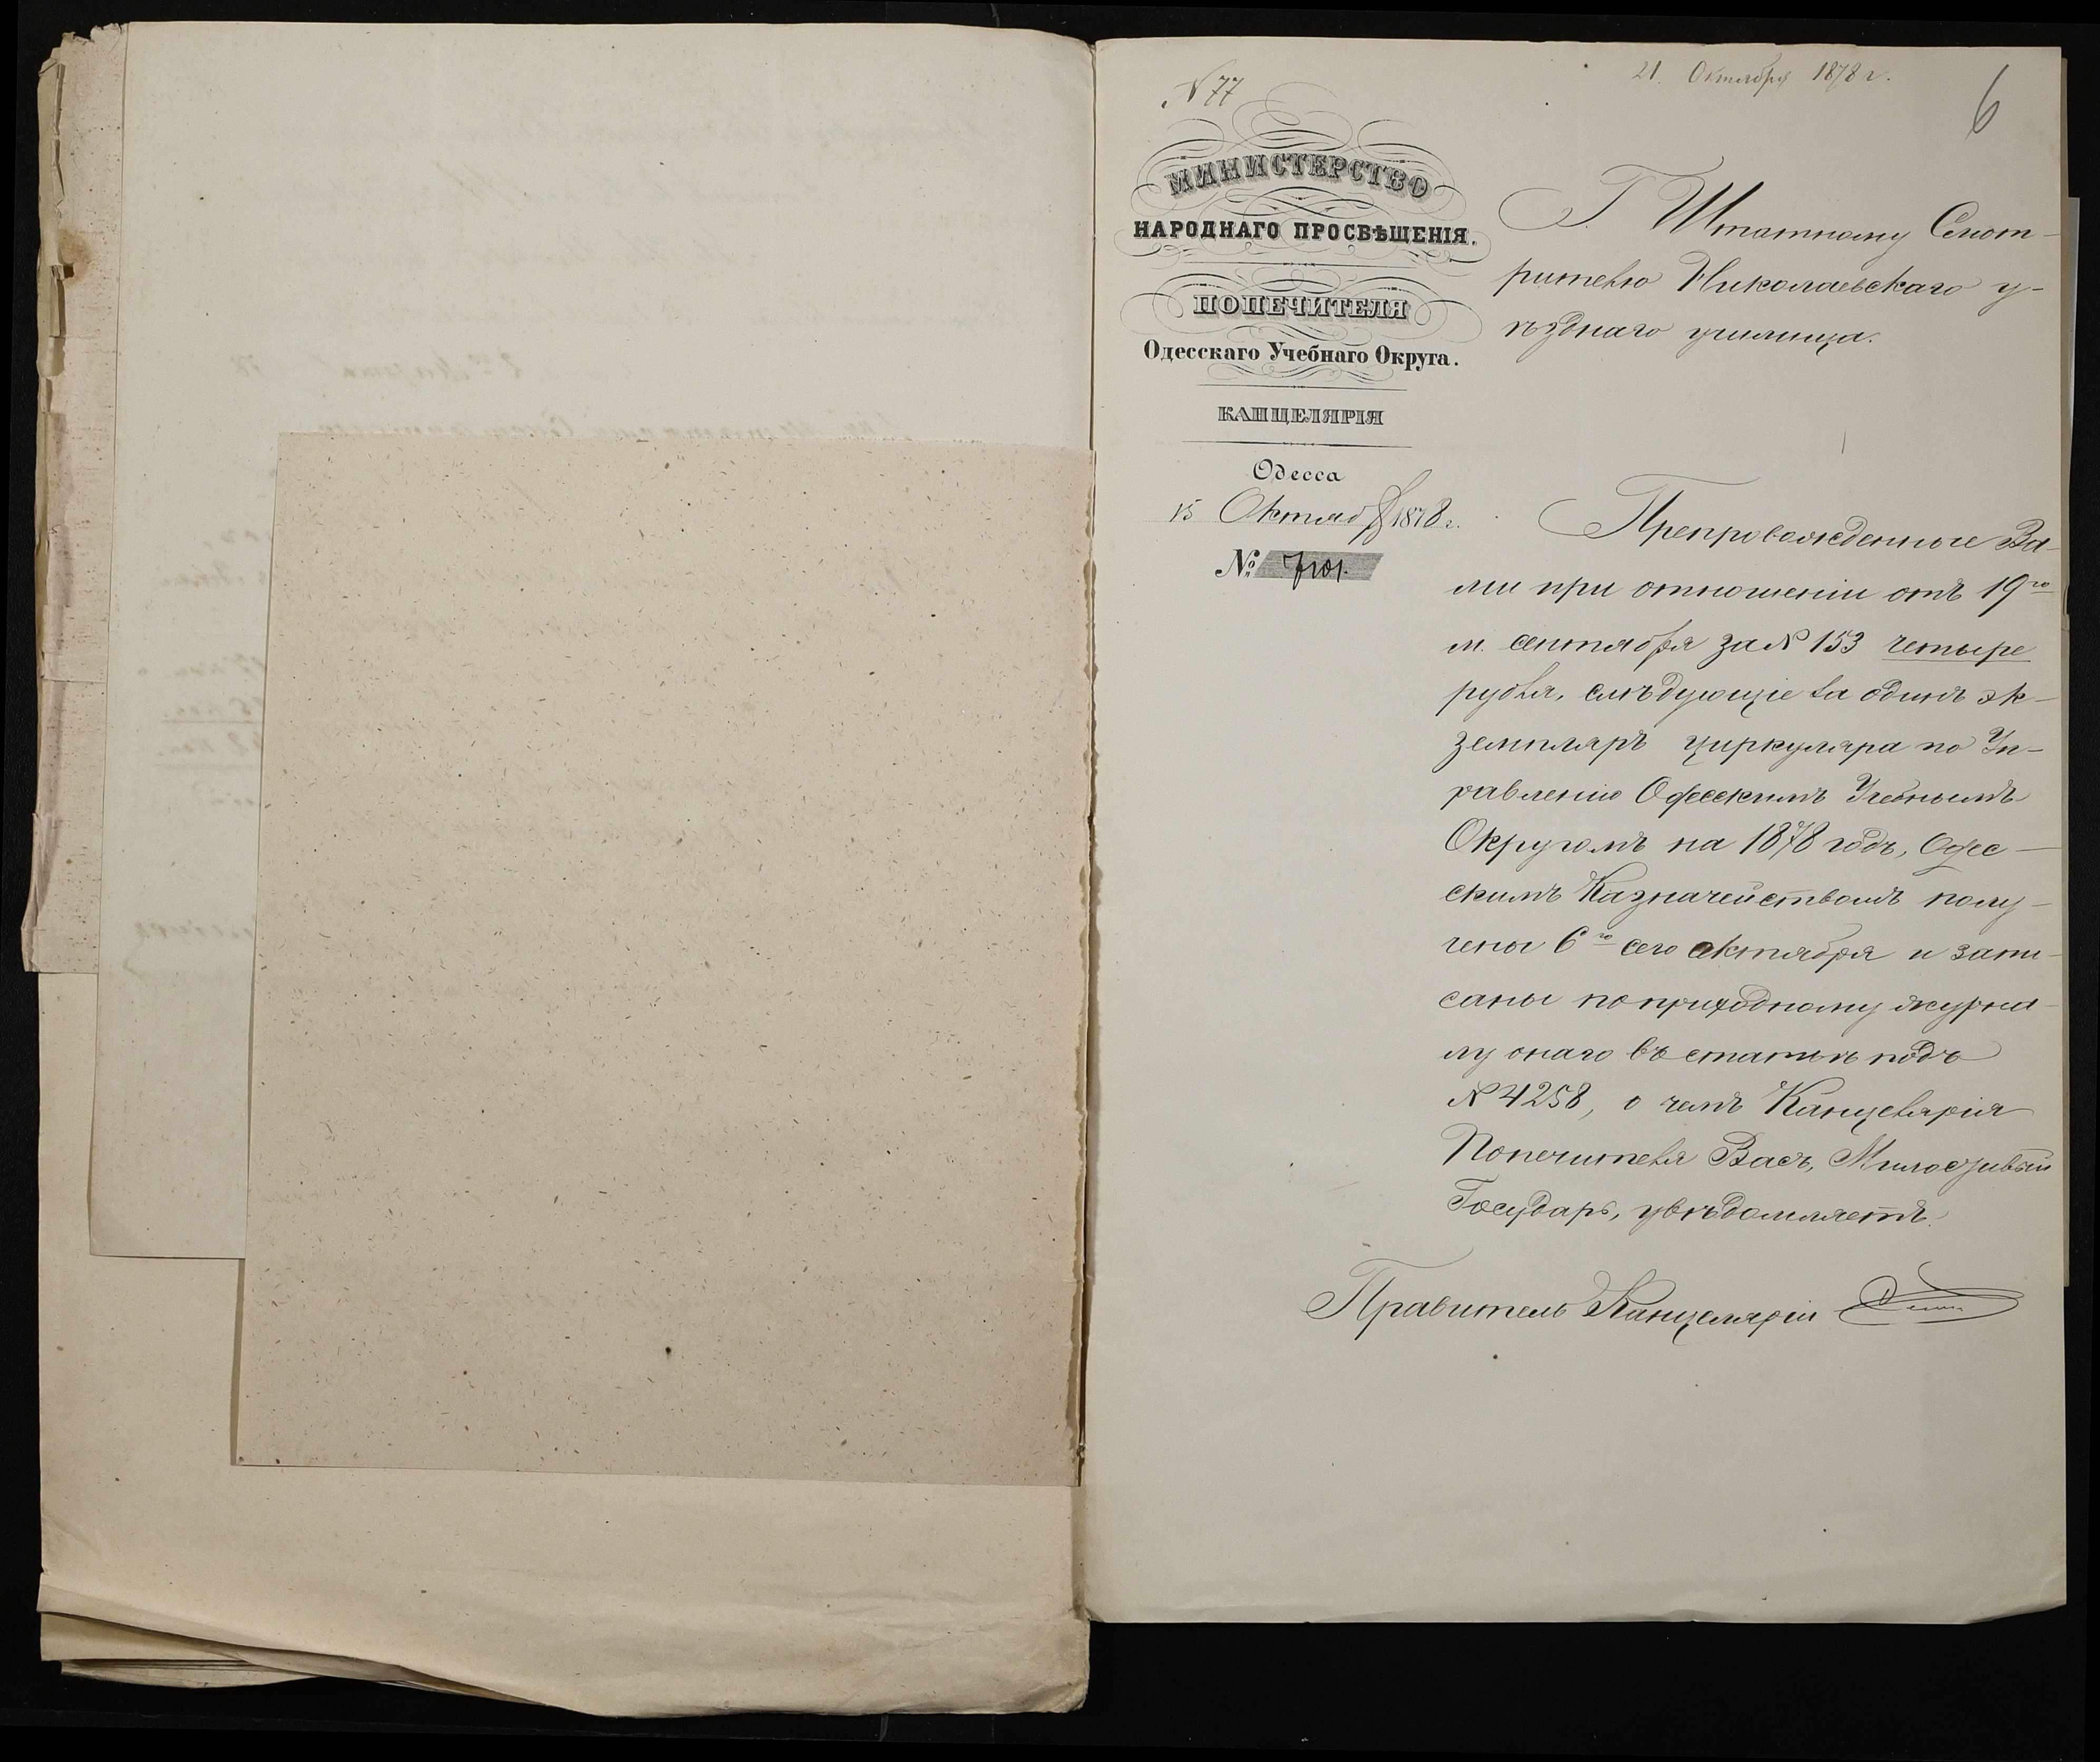 № 77
21. Октября 1878 г.
6
МИНИСТЕРСТВО
НАРОДНАГО ПРОСВѢЩЕНІЯ.
ПОПЕЧИТЕЛЯ
Одесскаго Учебнаго Округа.
КАНЦЕЛЯРІЯ
Одесса
15 Октяб 1878 г.
№ 7101.
Г. Штатному Смот-
рителю Николаевскаго у-
ѣзднаго училища.
Препровожденные Ва-
ми при отношеніи отъ 19го
м. сентября за № 153 четыре
рубля, слѣдующіе за одинъ эк-
земпляръ циркуляра по Уп-
равленію Одесскимъ Учебнымъ
Округомъ на 1878 годъ, Одес-
скимъ Казначействомъ полу-
чены 6го сего октября и запи-
саны по приходному журна-
лу онаго въ статьѣ подъ
№ 4258, о чемъ Канцелярія
Попечителя Васъ, Милостивый
Государь, увѣдомляетъ.
Правитель Канцеляріи